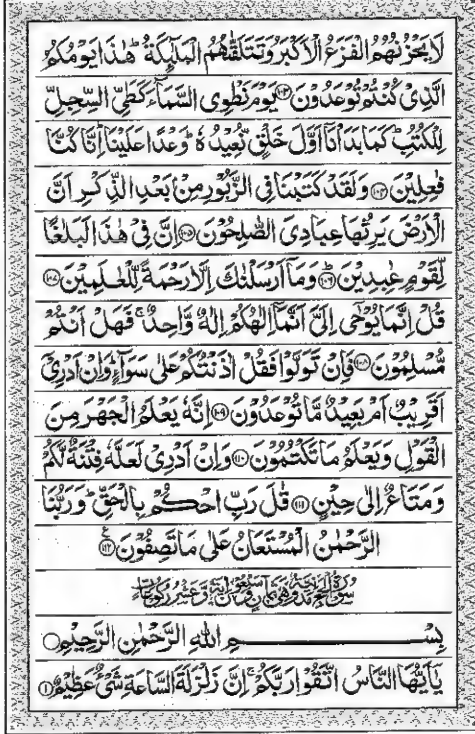 لَا يَحْزُنُهُمُ الْفَزَعُ الْاَكْبَرُ وَتَتَلَقّٰىهُمُ الْمَلٰٓئِكَةُ ؕ هٰذَا يَوْمُكُمُ
الَّذِىْ كُنْتُمْ تُوْعَدُوْنَ ۝۱۰۳ يَوْمَ نَطْوِى السَّمَآءَ كَطَىِّ السِّجِلِّ
لِلْكُتُبِ ؕ كَمَا بَدَاْنَاۤ اَوَّلَ خَلْقٍ نُّعِيْدُهٗ ؕ وَعْدًا عَلَيْنَا ؕ اِنَّا كُنَّا
فٰعِلِيْنَ ۝۱۰۴ وَلَقَدْ كَتَبْنَا فِى الزَّبُوْرِ مِنْۢ بَعْدِ الذِّكْرِ اَنَّ
الْاَرْضَ يَرِثُهَا عِبَادِىَ الصّٰلِحُوْنَ ۝۱۰۵ اِنَّ فِىْ هٰذَا لَبَلٰغًا
لِّقَوْمٍ عٰبِدِيْنَ ۝۱۰۶ وَمَاۤ اَرْسَلْنٰكَ اِلَّا رَحْمَةً لِّلْعٰلَمِيْنَ ۝۱۰۷
قُلْ اِنَّمَا يُوْحٰٓى اِلَىَّ اَنَّمَاۤ اِلٰهُكُمْ اِلٰهٌ وَّاحِدٌ ۚ فَهَلْ اَنْتُمْ
مُّسْلِمُوْنَ ۝۱۰۸ فَاِنْ تَوَلَّوْا فَقُلْ اٰذَنْتُكُمْ عَلٰى سَوَآءٍ ؕ وَاِنْ اَدْرِىْۤ
اَقَرِيْبٌ اَمْ بَعِيْدٌ مَّا تُوْعَدُوْنَ ۝۱۰۹ اِنَّهٗ يَعْلَمُ الْجَهْرَ مِنَ
الْقَوْلِ وَيَعْلَمُ مَا تَكْتُمُوْنَ ۝۱۱۰ وَاِنْ اَدْرِىْ لَعَلَّهٗ فِتْنَةٌ لَّكُمْ
وَمَتَاعٌ اِلٰى حِيْنٍ ۝۱۱۱ قٰلَ رَبِّ احْكُمْ بِالْحَقِّ ؕ وَرَبُّنَا
الرَّحْمٰنُ الْمُسْتَعَانُ عَلٰى مَا تَصِفُوْنَ ۝۱۱۲ ع
بِسْمِ اللّٰهِ الرَّحْمٰنِ الرَّحِيْمِ ۝
يٰۤاَيُّهَا النَّاسُ اتَّقُوْا رَبَّكُمْ ۚ اِنَّ زَلْزَلَةَ السَّاعَةِ شَىْءٌ عَظِيْمٌ ۝۱